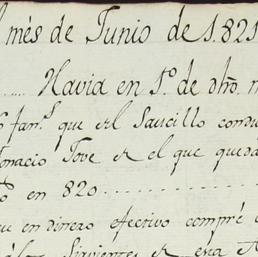 l més de Junio de 1.821
Navia en 1º de dhô. m
fan.s que el Saucillo condu
Ignacio Tove es el que queda
en 820
en dinero efectivo compré
Siguientes es esta